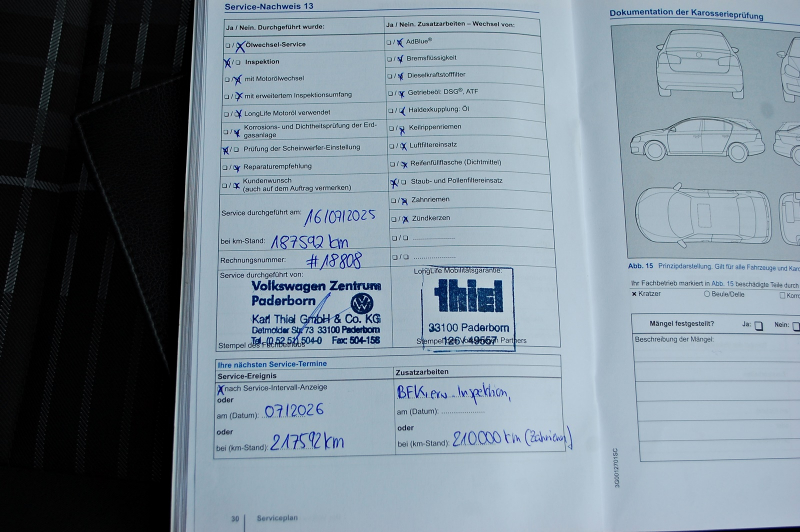 Service-Nachweis 13
Ja / Nein. Durchgeführt wurde:
Ölwechsel-Service
Inspektion
mit Motorölwechsel
mit erweitertem Inspektionsumfang
LongLife Motoröl verwendet
Korrosions- und Dichtheitsprüfung der Erd-
gasanlage
Prüfung der Scheinwerfer-Einstellung
Reparaturempfehlung
Kundenwunsch
(auch auf dem Auftrag vermerken)
Service durchgeführt am: 16/07/2025
bei km-Stand: 187592 km
Rechnungsnummer: #18808
Service durchgeführt von:
Volkswagen Zentrum
Paderborn
Karl Thiel GmbH & Co. KG
Detmolder Str. 73 33100 Paderborn
Tel. (0 52 51) 504-0 Fax: 504-156
Stempel des Fachbetriebs
Ja / Nein. Zusatzarbeiten – Wechsel von:
AdBlue®
Bremsflüssigkeit
Dieselkraftstofffilter
Getriebeöl: DSG®, ATF
Haldexkupplung: Öl
Keilrippenriemen
Luftfiltereinsatz
Reifenfüllflasche (Dichtmittel)
Staub- und Pollenfiltereinsatz
Zahnriemen
Zündkerzen
LongLife Mobilitätsgarantie:
thiel
33100 Paderborn
126V 49557
Partners
Ihre nächsten Service-Termine
Service-Ereignis
nach Service-Intervall-Anzeige
oder
am (Datum): 07/2026
oder
bei (km-Stand): 217592 km
Zusatzarbeiten
Inspektion,
am (Datum):
oder
bei (km-Stand): 210000 km
30 Serviceplan
Dokumentation der Karosserieprüfung
Abb. 15 Prinzipdarstellung. Gilt für alle Fahrzeuge und
Ihr Fachbetrieb markiert in Abb. 15 beschädigte Teile durch
× Kratzer
Beule/Delle
Mängel festgestellt? Ja: Nein:
Beschreibung der Mängel:
3G0012701SC